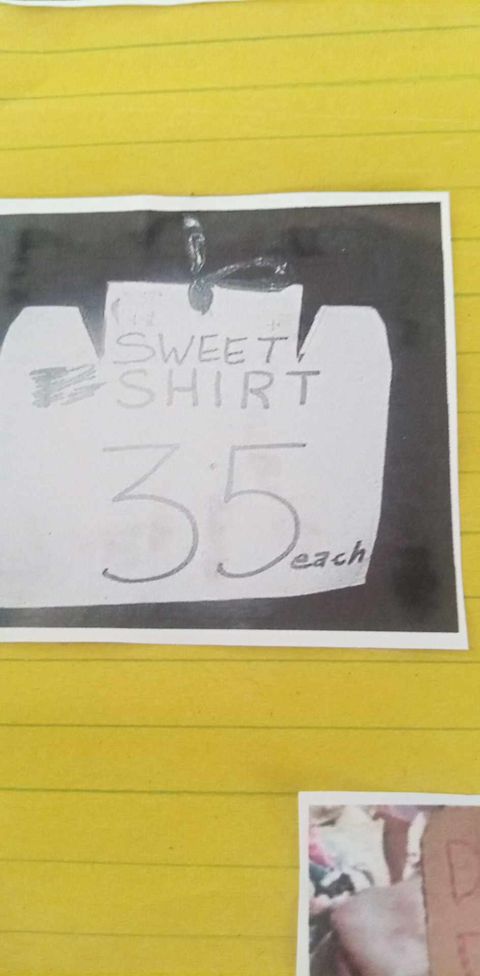 SWEET,
SHIRT
35
each